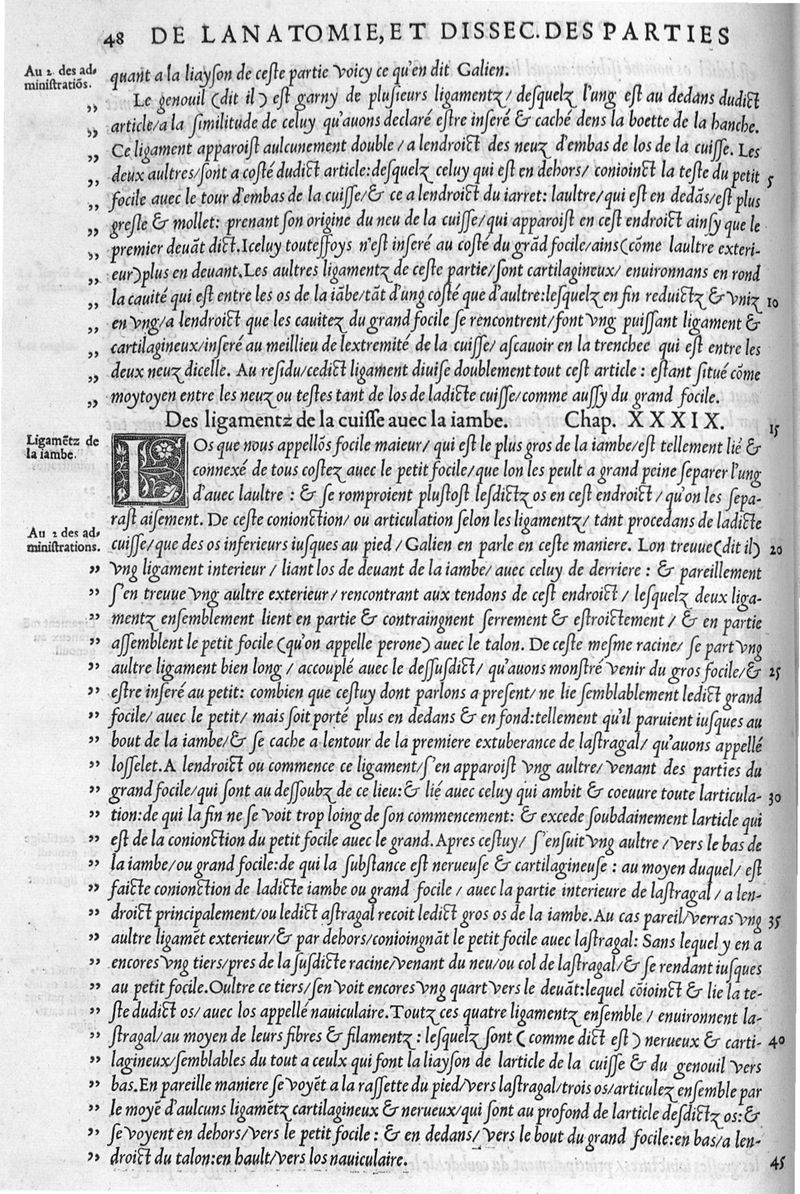 48 DE LANATOMIE, ET DISSEC. DES PARTIES
Au 2 des ad-
ministratiõs.
quant a la liayson de ceste partie voicy ce qu'en dit Galien.
,, Le genouil (dit il) est garny de plusieurs ligamentz/ desquelz l'ung est au dedans dudict
,, article/a la similitude de celuy qu'auons declaré estre inseré & caché dens la boette de la hanche.
,, Ce ligament apparoist aulcunement double/a lendroict des neuz d'embas de los de la cuisse. Les
,, deux aultres/sont a costé dudict article:desquelz celuy qui est en dehors/conioinct la teste du petit 5
,, focile auec le tour d'embas de la cuisse/& ce a lendroict du iarret: laultre/qui est en dedãs/est plus
,, gresle & mollet: prenant son origine du neu de la cuisse/qui apparoist en cest endroict ainsy que le
,, premier deuãt dict.Iceluy toutessoys n'est inseré au costé du grãd focile/ains(cõme laultre exteri-
,, eur)plus en deuant.Les aultres ligamentz de ceste partie/sont cartilagineux/enuironnans en rond
,, la cauité qui est entre les os de la iãbe/tãt d'ung costé que d'aultre:lesquelz en fin reduictz & vniz 10
,, en vng/a lendroict que les cauitez du grand focile se rencontrent/font vng puissant ligament &
,, cartilagineux/inseré au meillieu de lextremité de la cuisse/ascauoir en la trenchee qui est entre les
,, deux neuz dicelle. Au residu/cedict ligament diuise doublement tout cest article : estant situé cõme
,, moytoyen entre les neuz ou testes tant de los de ladicte cuisse/comme aussy du grand focile.
Des ligamentz de la cuisse auec la iambe. Chap. XXXIX. 15
Ligamẽtz de
la iambe.
LOs que nous appellõs focile maieur/ qui est le plus gros de la iambe/est tellement lié &
connexé de tous costez auec le petit focile/que lon les peult a grand peine separer l'ung
d'auec laultre : & se romproient plustost lesdictz os en cest endroict/qu'on les sepa-
rast aisement. De ceste conionction/ou articulation selon les ligamentz/ tant procedans de ladicte
Au 2 des ad-
ministrations.
cuisse/que des os inferieurs iusques au pied/Galien en parle en ceste maniere. Lon treuue(dit il) 20
,, vng ligament interieur/liant los de deuant de la iambe/auec celuy de derriere : & pareillement
,, s'en treuue vng aultre exterieur/rencontrant aux tendons de cest endroict/lesquelz deux liga-
,, mentz ensemblement lient en partie & contraingnent serrement & estroictement/& en partie
,, assemblent le petit focile (qu'on appelle perone) auec le talon. De ceste mesme racine/ se part vng
,, aultre ligament bien long/accouplé auec le dessusdict/qu'auons monstré venir du gros focile/& 25
,, estre inseré au petit: combien que cestuy dont parlons a present/ne lie semblablement ledict grand
,, focile/auec le petit/mais soit porté plus en dedans & en fond:tellement qu'il paruient iusques au
,, bout de la iambe/& se cache a lentour de la premiere extuberance de lastragal/qu'auons appellé
,, losselet.A lendroict ou commence ce ligament/s'en apparoist vng aultre/venant des parties du
,, grand focile/qui sont au dessoubz de ce lieu:& lié auec celuy qui ambit & coeuure toute larticula- 30
,, tion:de qui la fin ne se voit trop loing de son commencement: & excede soubdainement larticle qui
,, est de la conionction du petit focile auec le grand.Apres cestuy/ s'ensuit vng aultre/vers le bas de
,, la iambe/ou grand focile:de qui la substance est nerueuse & cartilagineuse : au moyen duquel/est
,, faicte conionction de ladicte iambe ou grand focile / auec la partie interieure de lastragal/a len-
,, droict principalement/ou ledict astragal recoit ledict gros os de la iambe.Au cas pareil/verras vng 35
,, aultre ligamẽt exterieur/& par dehors/conioingnãt le petit focile auec lastragal: Sans lequel y en a
,, encores vng tiers/pres de la susdicte racine/venant du neu/ou col de lastragal/& se rendant iusques
,, au petit focile.Oultre ce tiers/s'en voit encores vng quart vers le deuãt:lequel cõioinct & lie la te-
,, ste dudict os/auec los appellé nauiculaire.Toutz ces quatre ligamentz ensemble/enuironnent la-
,, stragal/au moyen de leurs fibres & filamentz : lesquelz sont (comme dict est) nerueux & carti- 40
,, lagineux/semblables du tout a ceulx qui font la liayson de larticle de la cuisse & du genouil vers
,, bas.En pareille maniere se voyẽt a la rassette du pied/vers lastragal/trois os/articulez ensemble par
,, le moyẽ d'aulcuns ligamẽtz cartilagineux & nerueux/qui sont au profond de larticle desdictz os:&
,, se voyent en dehors/vers le petit focile : & en dedans/vers le bout du grand focile:en bas/a len-
,, droict du talon:en hault/vers los nauiculaire. 45